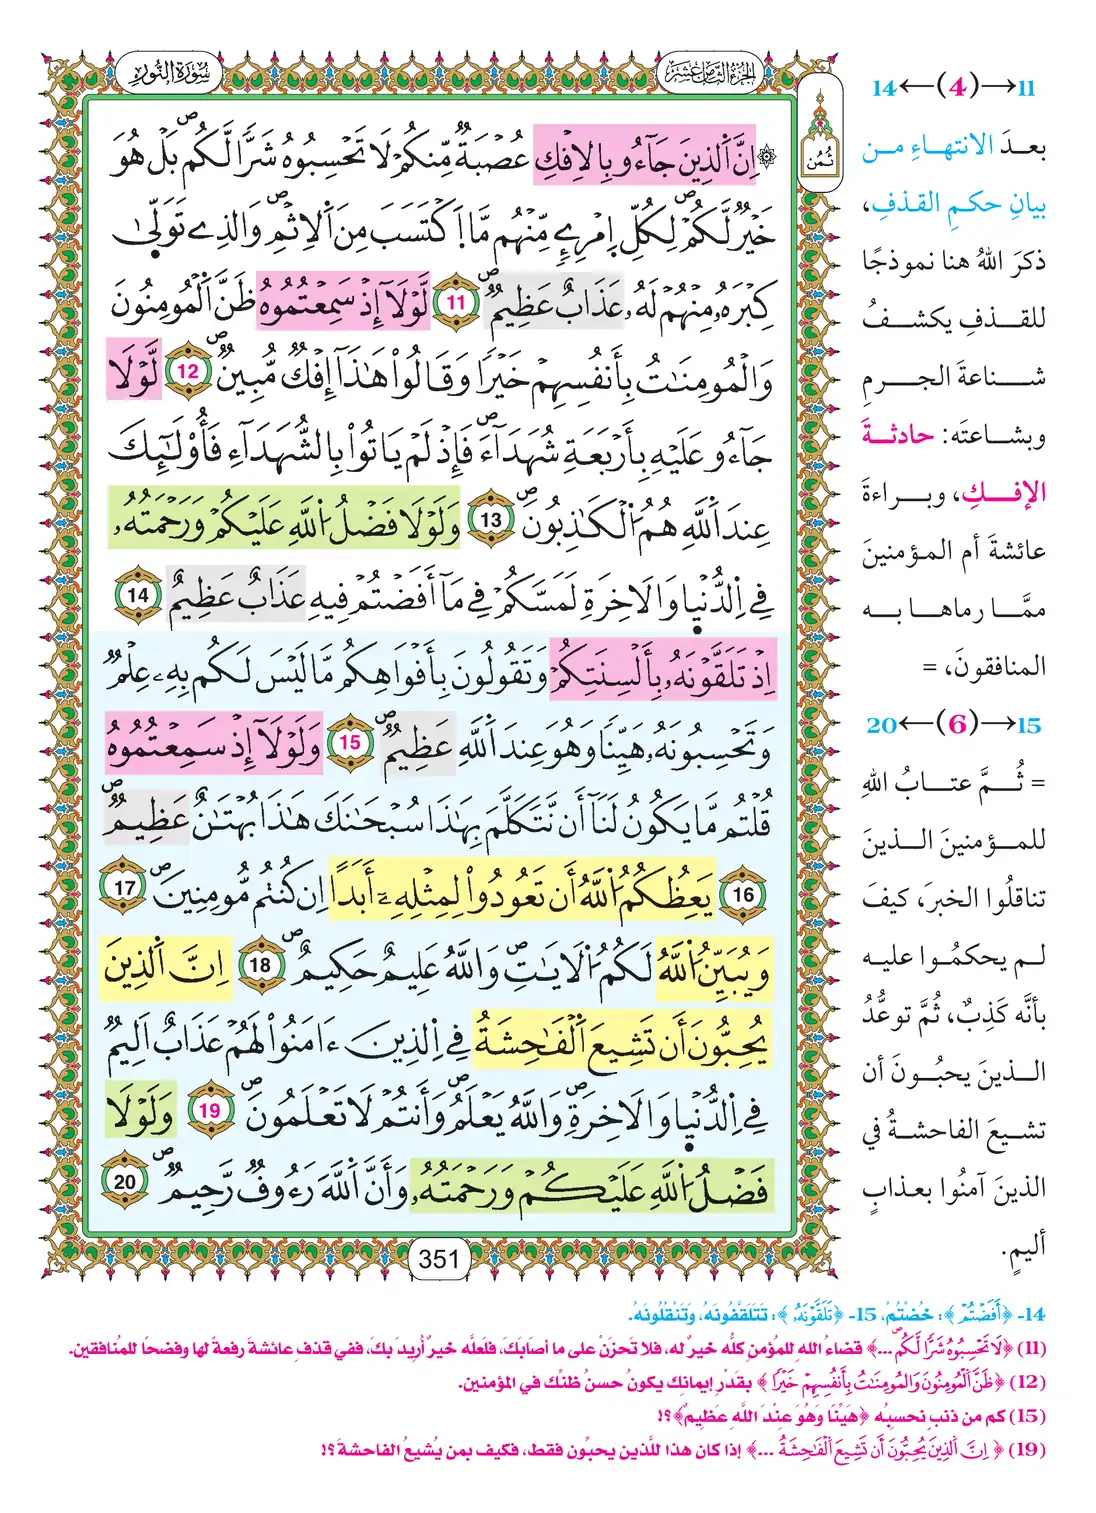 سُورَةُ النُّورِ
الجُزْءُ الثَّامِنَ عَشَرَ
ثُمُن
۞ إِنَّ اَ۬لذِينَ جَآءُو بِالِافْكِ عُصْبَةٌ مِّنكُمْ لَا تَحْسِبُوهُ شَرّاٗ لَّكُم بَلْ هُوَ
خَيْرٞ لَّكُمْ لِكُلِّ اِ۪مْرِےٕٖ مِّنْهُم مَّا اَ۪كْتَسَبَ مِنَ اَ۬لِاثْمِ وَالذِے تَوَلّ۪يٰ
كِبْرَهُۥ مِنْهُمْ لَهُۥ عَذَابٌ عَظِيمٞ 11 لَّوْلَآ إِذْ سَمِعْتُمُوهُ ظَنَّ اَ۬لْمُومِنُونَ
وَالْمُومِنَٰتُ بِأَنفُسِهِمْ خَيْراٗ وَقَالُواْ هَٰذَآ إِفْكٞ مُّبِينٞ 12 لَّوْلَا
جَآءُو عَلَيْهِ بِأَرْبَعَةِ شُهَدَآءَ فَإِذْ لَمْ يَاتُواْ بِالشُّهَدَآءِ فَأُوْلَٰٓئِكَ
عِندَ اَ۬للَّهِ هُمُ اُ۬لْكَٰذِبُونَ 13 وَلَوْلَا فَضْلُ اُ۬للَّهِ عَلَيْكُمْ وَرَحْمَتُهُۥ
فِے اِ۬لدُّنْي۪ا وَالَاخِرَةِ لَمَسَّكُمْ فِے مَآ أَفَضْتُمْ فِيهِ عَذَابٌ عَظِيمٌ 14
اِذْ تَلَقَّوْنَهُۥ بِأَلْسِنَتِكُمْ وَتَقُولُونَ بِأَفْوَاهِكُم مَّا لَيْسَ لَكُم بِهِۦ عِلْمٞ
وَتَحْسِبُونَهُۥ هَيِّناٗ وَهُوَ عِندَ اَ۬للَّهِ عَظِيمٞ 15 وَلَوْلَآ إِذْ سَمِعْتُمُوهُ
قُلْتُم مَّا يَكُونُ لَنَآ أَن نَّتَكَلَّمَ بِهَٰذَا سُبْحَٰنَكَ هَٰذَا بُهْتَٰنٌ عَظِيمٞ
16 يَعِظُكُمُ اُ۬للَّهُ أَن تَعُودُواْ لِمِثْلِهِۦٓ أَبَداً اِن كُنتُم مُّومِنِينَ 17
وَيُبَيِّنُ اُ۬للَّهُ لَكُمُ اُ۬لَايَٰتِ وَاللَّهُ عَلِيمٌ حَكِيمٌ 18 اِنَّ اَ۬لذِينَ
يُحِبُّونَ أَن تَشِيعَ اَ۬لْفَٰحِشَةُ فِے اِ۬لذِينَ ءَامَنُواْ لَهُمْ عَذَابٌ اَلِيمٞ
فِے اِ۬لدُّنْي۪ا وَالَاخِرَةِ وَاللَّهُ يَعْلَمُ وَأَنتُمْ لَا تَعْلَمُونَ 19 وَلَوْلَا
فَضْلُ اُ۬للَّهِ عَلَيْكُمْ وَرَحْمَتُهُۥ وَأَنَّ اَ۬للَّهَ رَءُوفٞ رَّحِيمٞ 20
351
11→(4)←14
بعدَ الانتهاءِ من
بيانِ حكمِ القذفِ،
ذكرَ اللهُ هنا نموذجًا
للقذفِ يكشفُ
شناعةَ الجرمِ
وبشاعتَه: حادثةَ
الإفكِ، وبراءةَ
عائشةَ أم المؤمنينَ
ممَّا رماها به
المنافقونَ، =
15→(6)←20
= ثُمَّ عتابُ اللهِ
للمؤمنينَ الذينَ
تناقلُوا الخبرَ، كيفَ
لم يحكمُوا عليه
بأنَّه كَذِبٌ، ثُمَّ توعُّدُ
الذينَ يحبُونَ أن
تشيعَ الفاحشةُ في
الذينَ آمنُوا بعذابٍ
أليمٍ.
14- ﴿أَفَضْتُمْ﴾: خُضْتُمْ، 15- ﴿تَلَقَّوْنَهُۥ﴾: تَتَلَقَّفُونَهُ، وَتَنْقُلُونَهُ.
(11) ﴿لَا تَحْسِبُوهُ شَرّاٗ لَّكُم ...﴾ قضاءُ اللهِ للمُؤمنِ كلُّه خيرٌ له، فلا تَحزَنْ على ما أصابَكَ، فلعلَّه خيرٌ أُريدَ بكَ، ففي قذفِ عائشةَ رفعةٌ لها وفضحًا للمُنافقين.
(12) ﴿ظَنَّ اَ۬لْمُومِنُونَ وَالْمُومِنَٰتُ بِأَنفُسِهِمْ خَيْراٗ﴾ بقَدْرِ إيمانِك يكون حسنُ ظنِّكَ في المؤمنين.
(15) كم من ذنبٍ نحسبُه ﴿هَيِّنًا وَهُوَ عِنْدَ اللَّهِ عَظِيمٌ﴾؟!
(19) ﴿اِنَّ اَ۬لذِينَ يُحِبُّونَ أَن تَشِيعَ اَ۬لْفَٰحِشَةُ ...﴾ إذا كان هذا للَّذين يحبُّون فقط، فكيف بمن يُشيعُ الفاحشةَ؟!